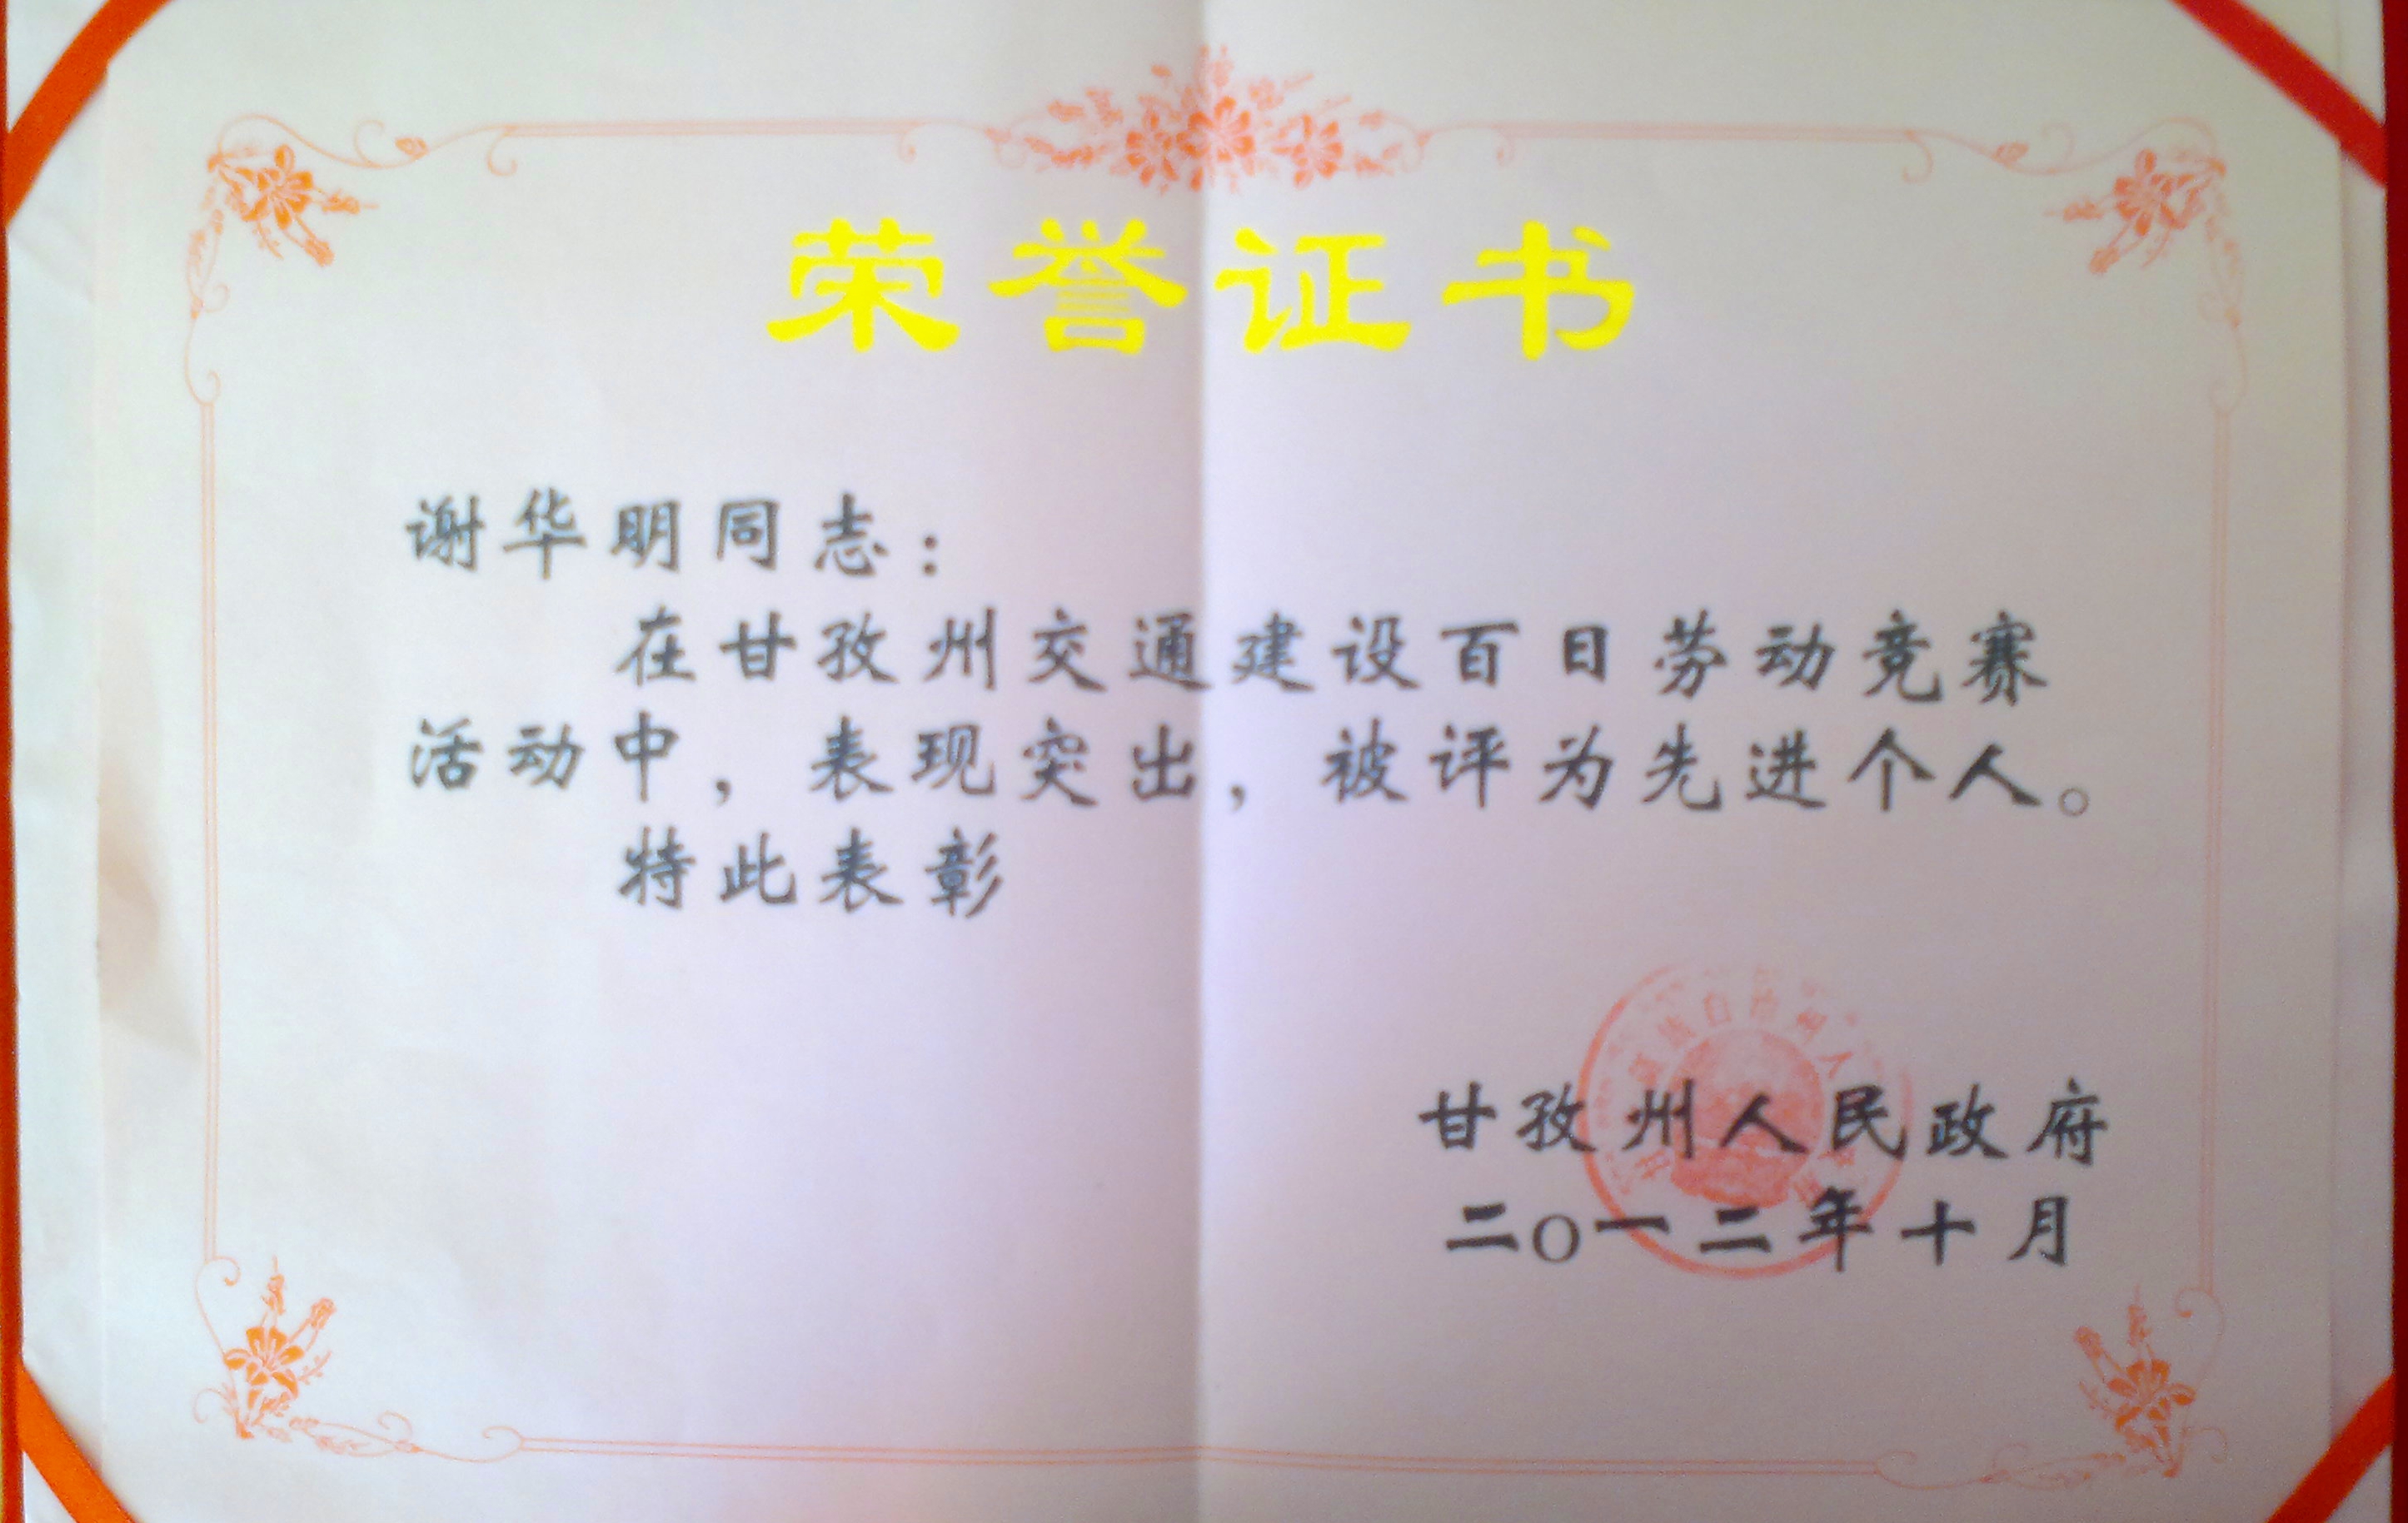 荣誉证书
谢华明同志：
在甘孜州交通建设百日劳动竞赛
活动中，表现突出，被评为先进个人。
特此表彰
甘孜州人民政府
二O一二年十月